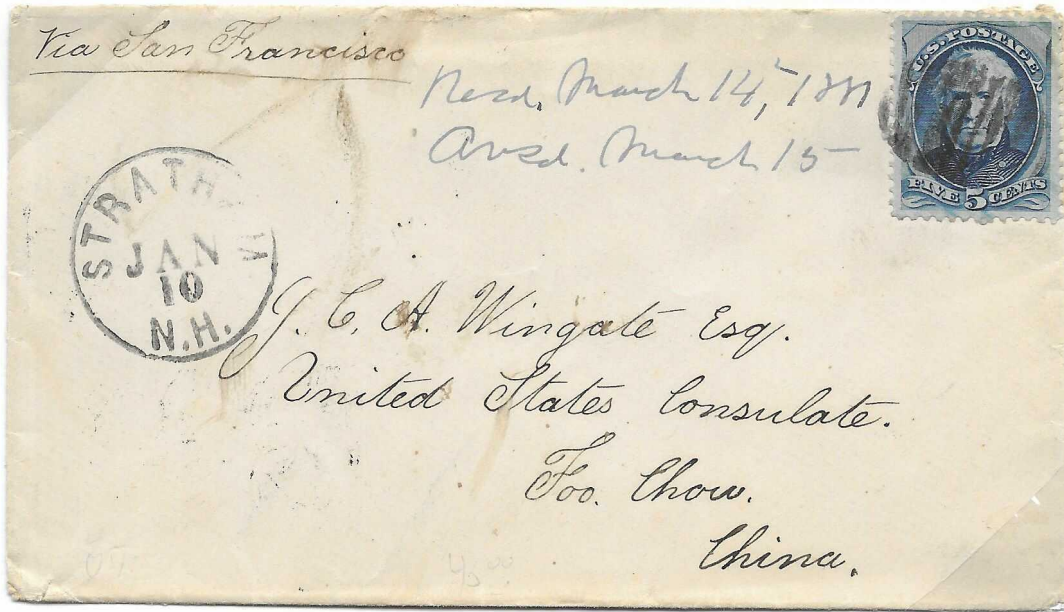 Via San Francisco
Recd. March 14,
Ansd. March 15
U.S. POSTAGE
FIVE 5 CENTS
JAN
10
N.H.
J. C. A. Wingate Esq.
United States Consulate.
Foo. Chow.
China.